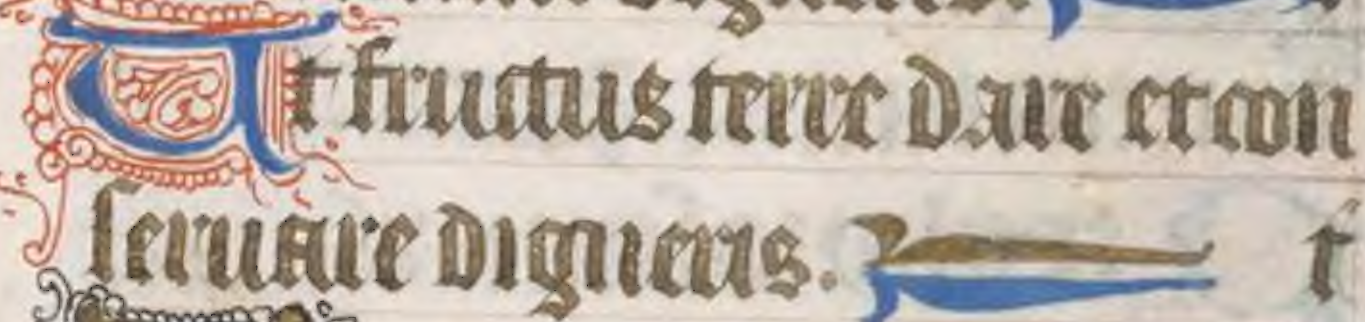 Ut fructus terre dare et con
seruare digneris. t